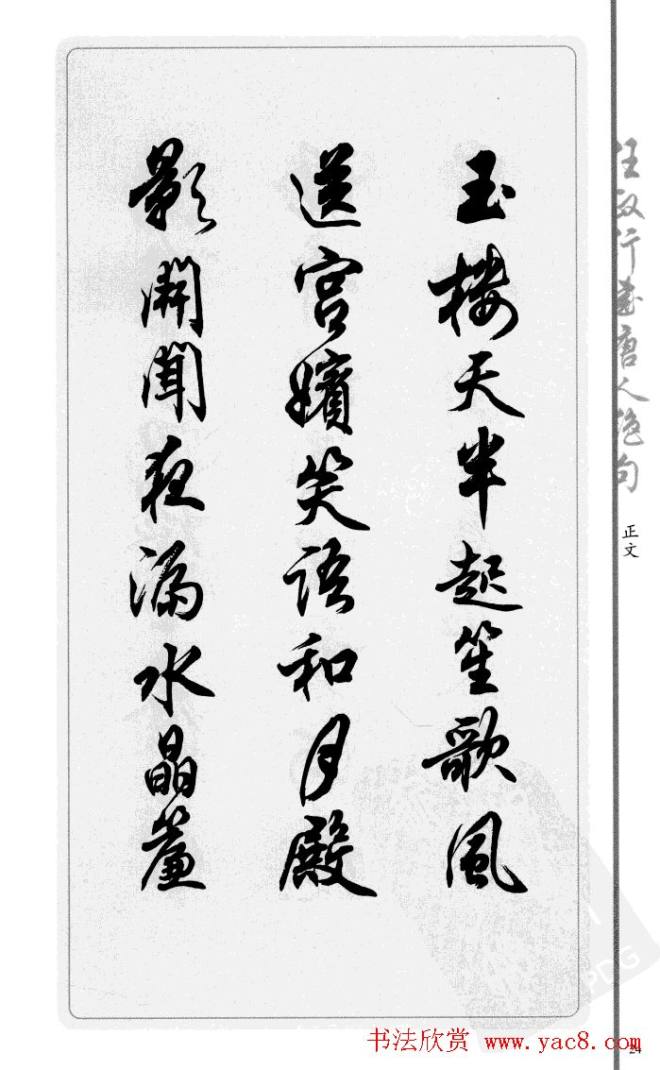 玉樓天半起笙歌風
送宮嬪笑語和月殿
影開聞夜漏水晶簾
任政行書唐人絕句
正文
书法欣赏 www.yac8.com
24
PDG